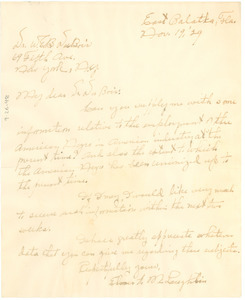 East Palatka, Fla.
Nov 19, 29
Dr. W.E.B. DuBois
69 Fifth Ave.
New York, N.Y.
My dear Dr. DuBois:
Can you supply me with some
information relative to the employment of the
American Negro in American industry at the
present time; and also the extent to which
the American Negro has been unionized up to
the present time.
If I may I would like very much
to secure such information within the next two
weeks.
I
greatly appreciate whatever
data that you can give me regarding this subject.
Respectfully yours,